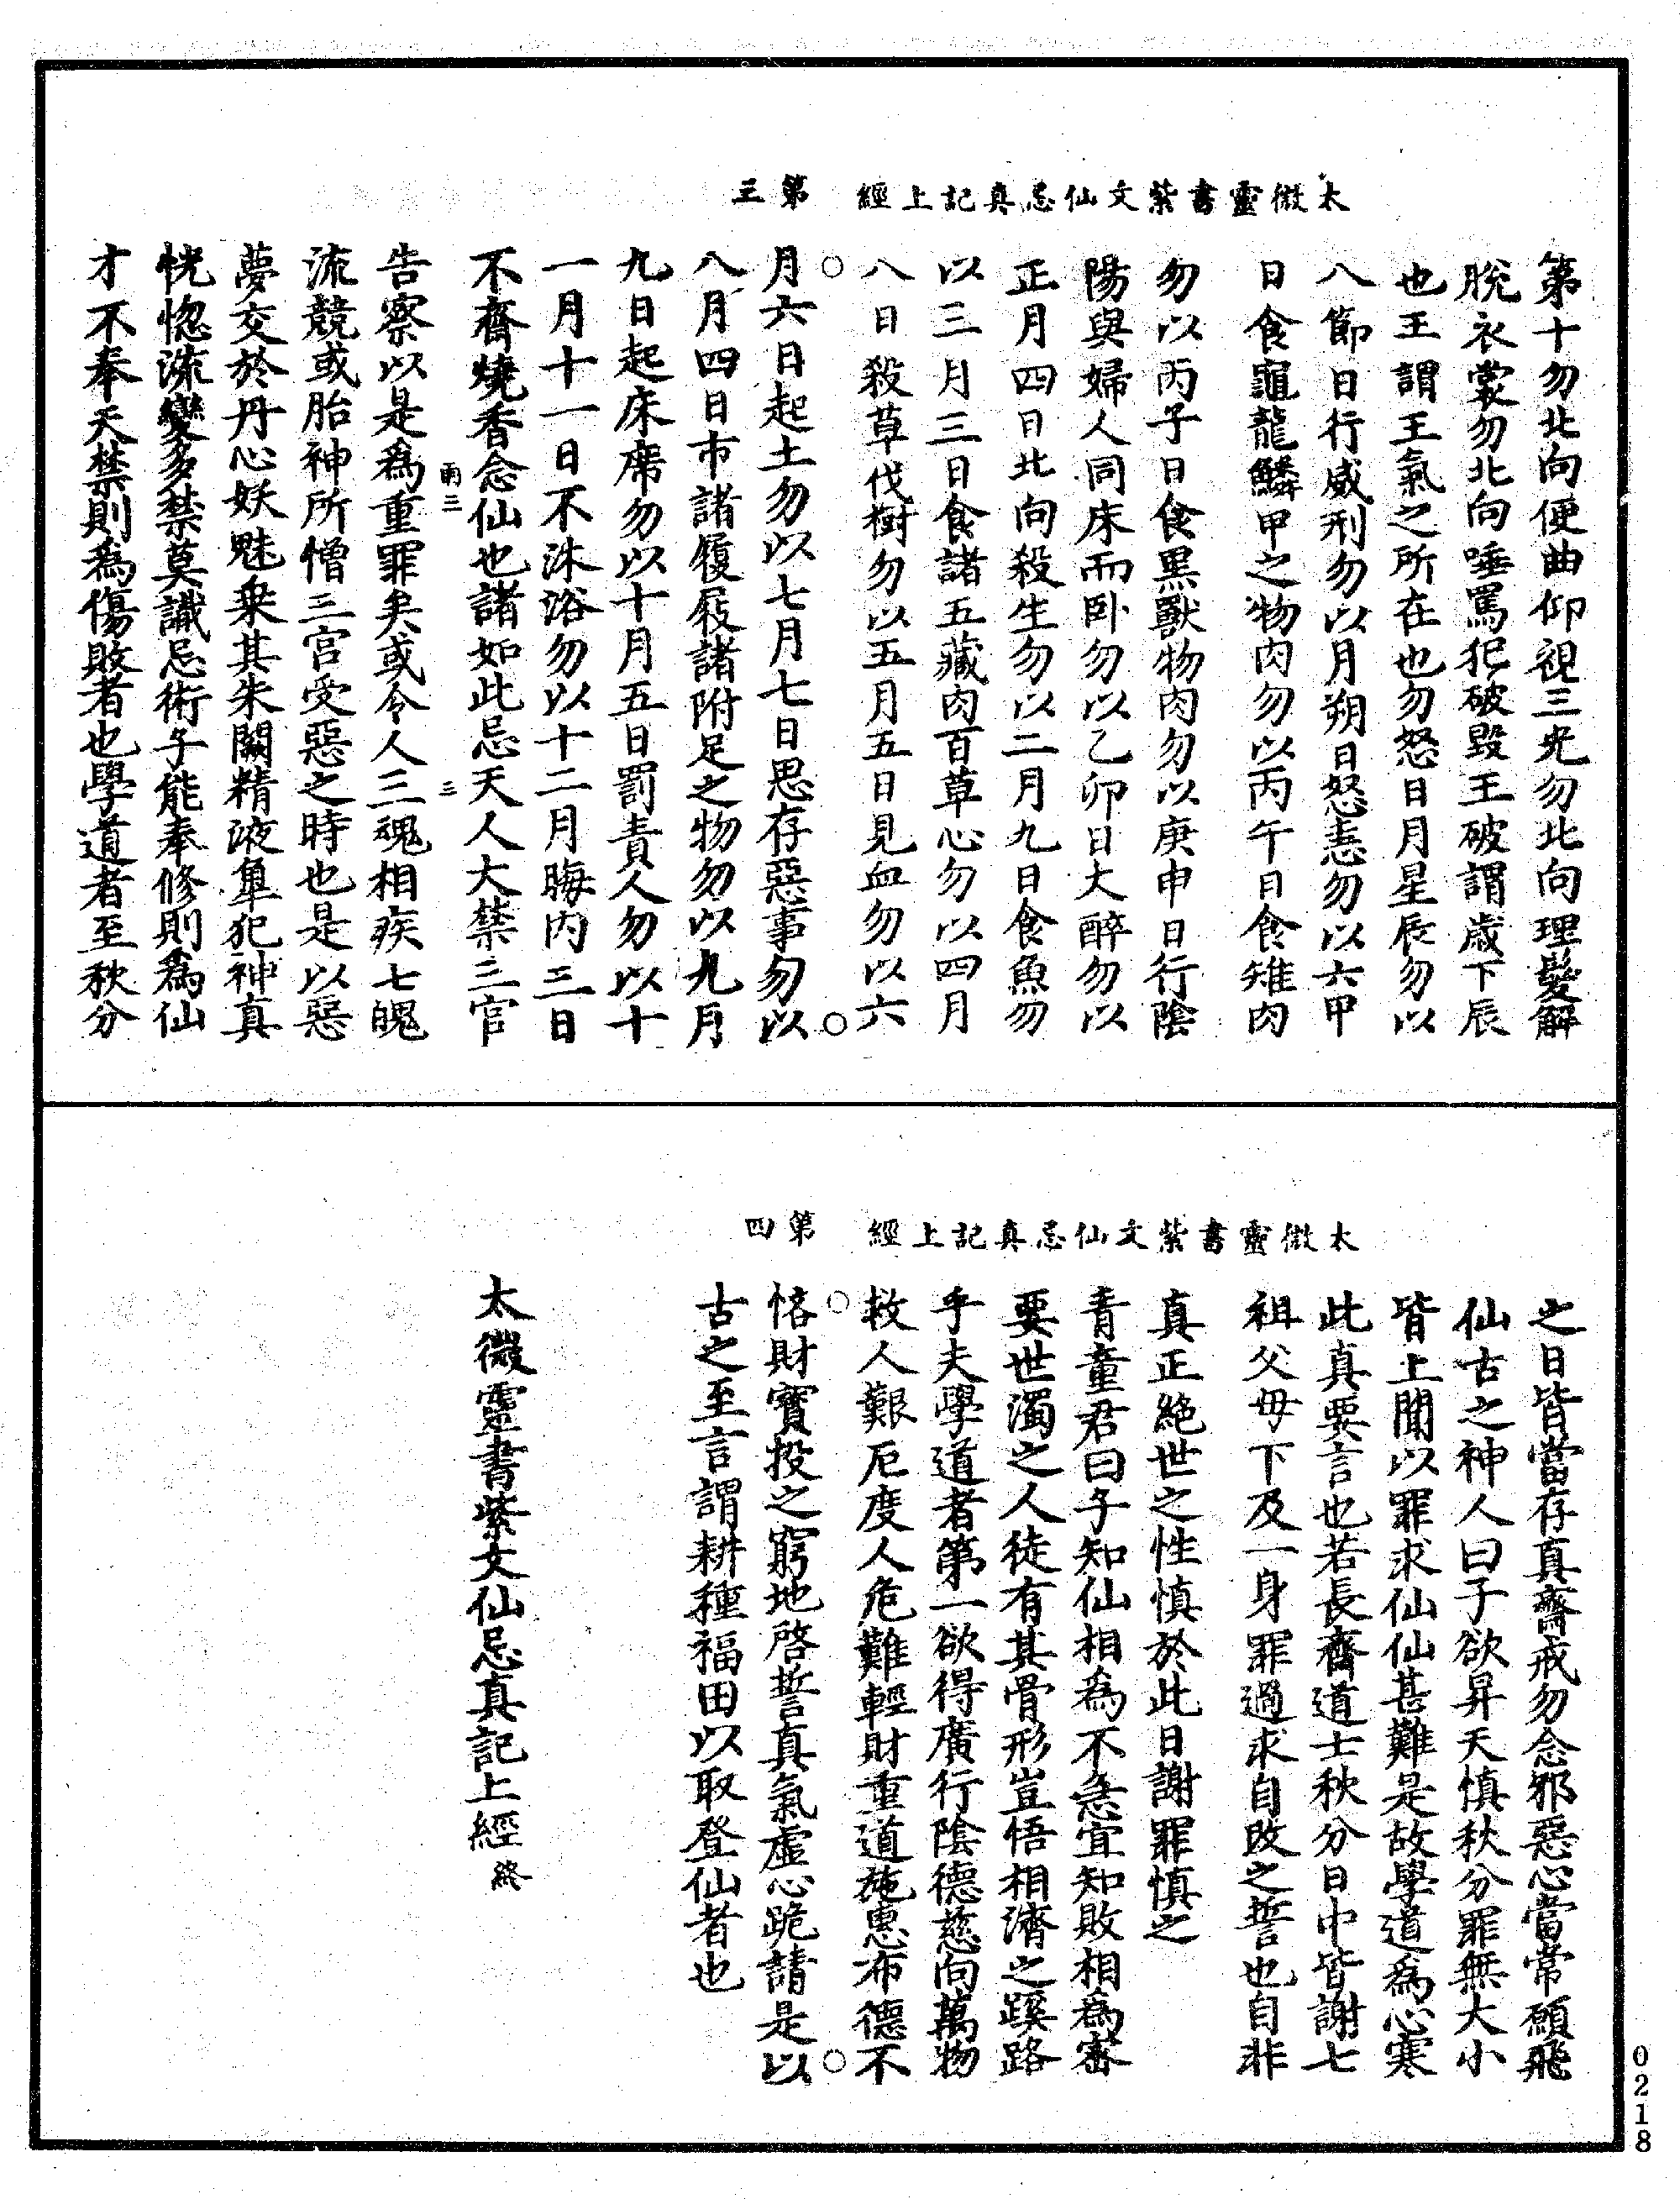 太微靈書紫文仙忌真記上經　第三
第十勿北向便曲仰視三光勿北向理髮解
脫衣裳勿北向唾罵犯破毀王破謂歲下辰
也王謂王氣之所在也勿怒日月星辰勿以
八節日行威刑勿以月朔日怒恚勿以六甲
日食龜龍鱗甲之物肉勿以丙午日食雉肉
勿以丙子日食黑獸物肉勿以庚申日行陰
陽與婦人同床而卧勿以乙卯日大醉勿以
正月四日北向殺生勿以二月九日食魚勿
以三月三日食諸五藏肉百草心勿以四月
八日殺草伐樹勿以五月五日見血勿以六
月六日起土勿以七月七日思存惡事勿以
八月四日市諸履屐諸附足之物勿以九月
九日起床席勿以十月五日罰責人勿以十
一月十一日不沐浴勿以十二月晦內三日
不齋燒香念仙也諸如此忌天人大禁三官
雨三　三
告察以是為重罪矣或令人三魂相疾七魄
流競或胎神所憎三宮受惡之時也是以惡
夢交於丹心妖魅乘其朱闕精液犇犯神真
恍惚流變多禁莫識忌術子能奉修則為仙
才不奉天禁則為傷敗者也學道者至秋分
太微靈書紫文仙忌真記上經　第四
之日皆當存真齋戒勿念邪惡心當常願飛
仙古之神人曰子欲昇天慎秋分罪無大小
皆上聞以罪求仙仙甚難是故學道為心寒
此真要言也若長齋道士秋分日中皆謝七
祖父母下及一身罪過求自改之誓也自非
真正絕世之性慎於此日謝罪慎之
青童君曰子知仙相為不急宜知敗相為審
要世濁之人徒有其骨形豈悟相濟之蹊路
乎夫學道者第一欲得廣行陰德慈向萬物
救人艱厄度人危難輕財重道施惠布德不
悋財寶投之窮地啓誓真氣虛心跪請是以
古之至言謂耕種福田以取登仙者也
太微靈書紫文仙忌真記上經終
0218